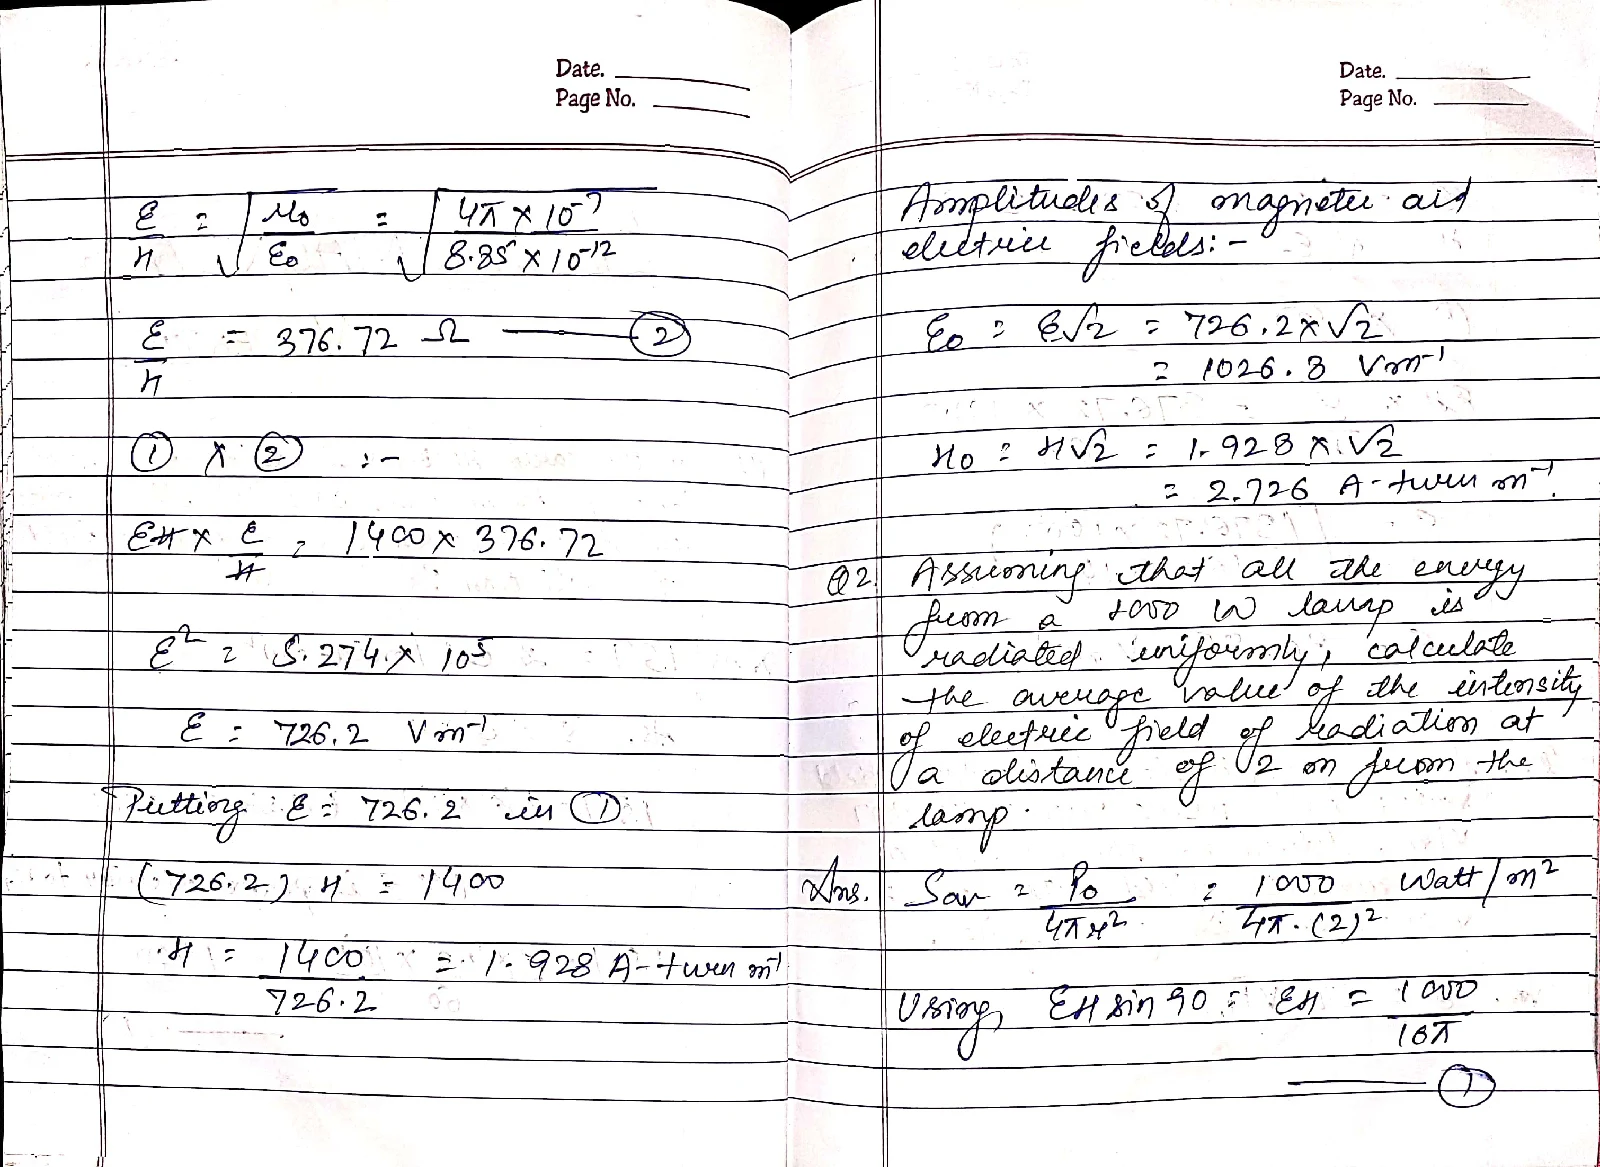 Date.
Page No.
E/H = √(μ0/ε0) = √(4π × 10-7 / 8.85 × 10-12)
E/H = 376.72 Ω ——— (2)
(1) × (2) :-
EH × E/H = 1400 × 376.72
E² = 5.274 × 10⁵
E = 726.2 Vm⁻¹
Putting E = 726.2 in (1)
(726.2) H = 1400
H = 1400/726.2 = 1.928 A-turn m⁻¹
Date.
Page No.
Amplitudes of magnetic and
electric fields:-
E0 = E√2 = 726.2×√2
= 1026.8 Vm⁻¹
H0 = H√2 = 1.928 × √2
= 2.726 A-turn m⁻¹.
Q2. Assuming that all the energy
from a 1000 W lamp is
radiated uniformly, calculate
the average value of the intensity
of electric field of radiation at
a distance of 2 m from the
lamp.
Ans. Sav = P0/4πr² = 1000/4π.(2)² Watt/m²
Using, EH sin 90 = EH = 1000/16π
——— (1)